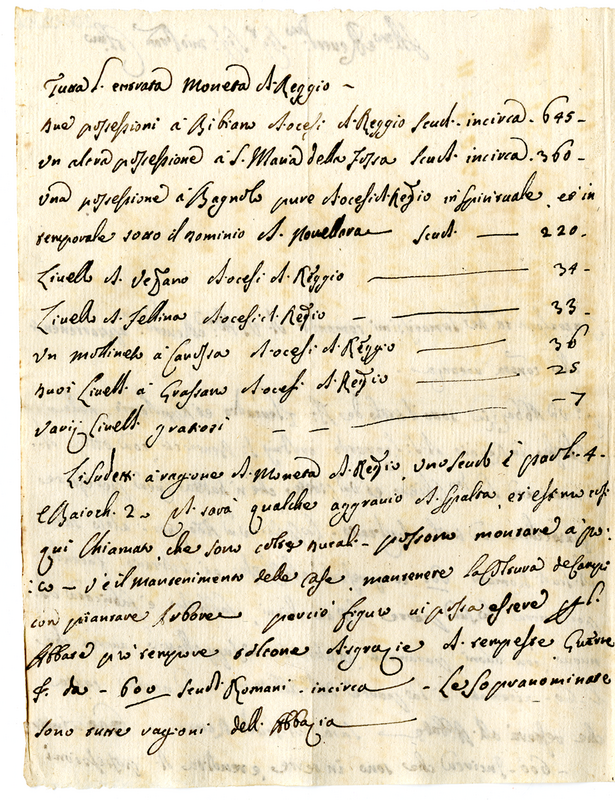 Tutta l'entrata Moneta di Reggio -
Due possessioni à Bibiano diocesi di Reggio scudi incirca - 645 -
Un altra possessione à S. Maria della Fossa scudi incirca - 360 -
Una possessione à Bagnolo pure diocesi di Regio in spirituale, et in
temporale sotto il Dominio di Novellara scudi - 220 -
Livelli di Vezano diocesi di Reggio - 34 -
Livelli di Fellina diocesi di Regio - 33 -
Un molineto à Canossa diocesi di Reggio - 36
Nuovi Livelli à Grassano diocesi di Regio - 25
Varij Livelli - - - 7
Li sudetti à ragione di Moneta di Regio, uno scudo è paoli - 4 -
e Baiochi 2 - Vi sarà qualche aggravio di et estimo così
qui chiamato, che sono colte Ducali - possono montare à
- v'è il mantenimento delle case, mantenere la coltura de Campi
con piantare Arbore perciò figuro vi possa essere l.
Abbate pro tempore disgrazie di tempeste Guerre
da - 600 scudi Romani - incirca - Le sopranominate
sono tutte ragioni dell' Abbazia